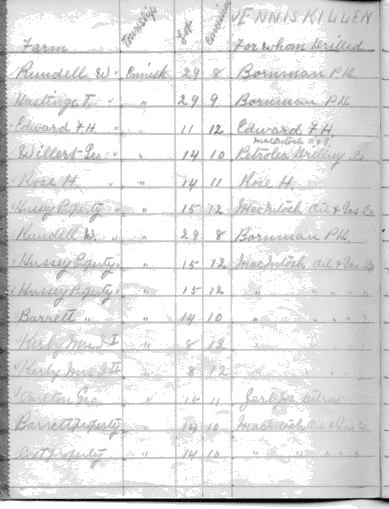 ENNISKILLEN
Farm Township Lot Concession For whom Drilled
Rundell W. " Ennisk 29 8 Bornman P.K.
Hastings T. " " 29 9 Bornman P.K.
Edward F.H. " " 11 12 Edward F.H.
Willert Geo " 14 10 Petrolea Drilling Co
Rose H. " 14 11 Rose H.
Hussey Property " 15 12 MacIntosh Oil & Gas Co
Rundell W. " 29 8 Bornman P.K.
Hussey Property " 15 12 MacIntosh Oil & Gas Co
Hussey Property " 15 12 " " " "
Barrett " " 14 10 " " " "
Kerby I " 8 12 " " " "
Kerby II " 8 12 " " " "
Carlton Geo. " 15 11
Barrett Property " 14 10 MacIntosh Oil & Gas Co.
Property " 14 10 " " " "